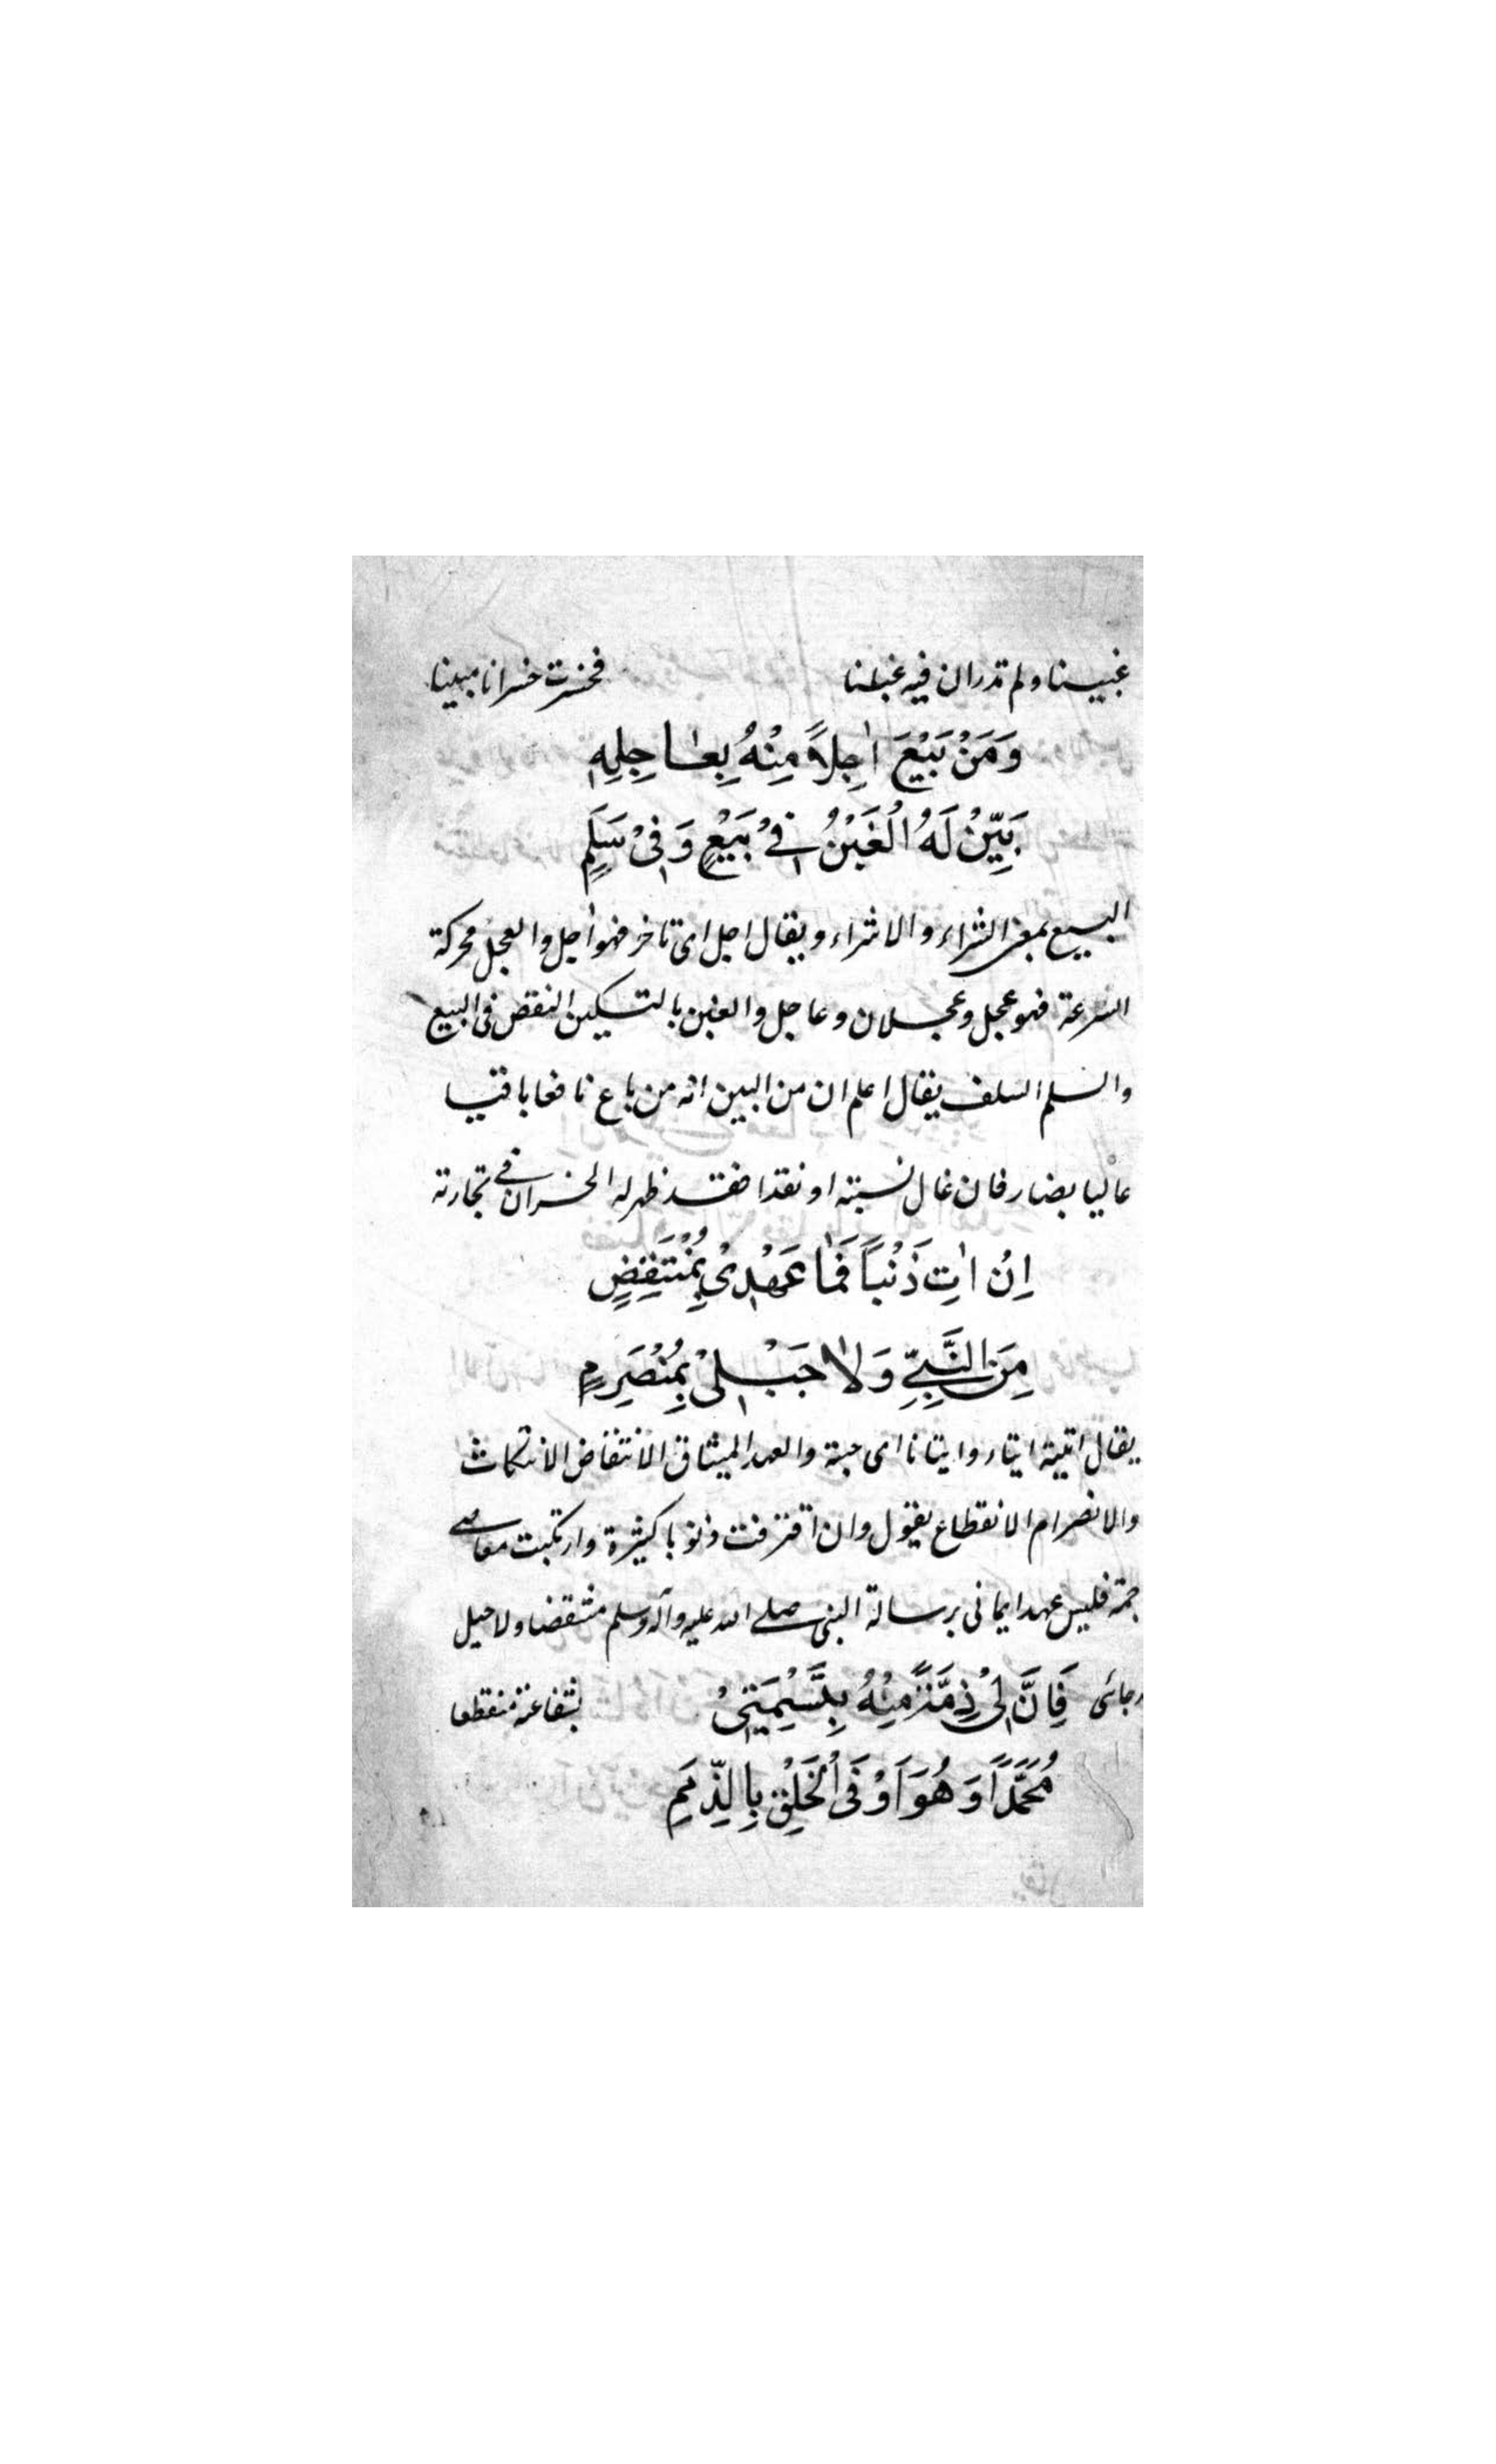 غبينا ولم تدر ان فيه غبنا فخسرت خسرانا مبينا
وَمَنْ يَبِيْعَ اٰجِلاً مِنْهُ بِعٰاجِلِهٖ
يَبِيْنُ لَهُ الْغَبْنُ فِيْ بَيْعٍ وَفِيْ سَلَمٍ
البيع بمعنى الشراء والاشراء ويقال اجل اى تاخر فهو اٰجل والعجل محركة
السرعة فهو عجل وعجلان وعاجل والغبن بالتسكين النقص فى البيع
والسلم السلف يقال اعلم ان من البين انه من باع نافعا باقيا
عاليا بضار فان غال نسيته او نقدا فقد ظهر له الخسران فى تجارته
اِنْ اٰتِ ذَنْبًا فَمَا عَهْدِيْ بِمُنْتَقِضٍ
مِنَ النَّبِيِّ وَلاٰ حَبْلِيْ بِمُنْصَرِمٍ
يقال اتيته ايتاء وايتانا اى جئته والعهد الميثاق الانتقاض الانتكاث
والانصرام الانقطاع يقول وان اقترفت ذنوبا كثيرة وارتكبت معاصى
جمة فليس عهد ايمانى برسالة النبى صلى الله عليه وآله وسلم منتقضا ولا حبل
رجائى فَاِنَّ لِيْ ذِمَّةً مِنْهُ بِتَسْمِيَتِيْ بشفاعته منقطعا
مُحَمَّدًا وَهُوَ اَوْفَى الْخَلْقِ بِالذِّمَمِ